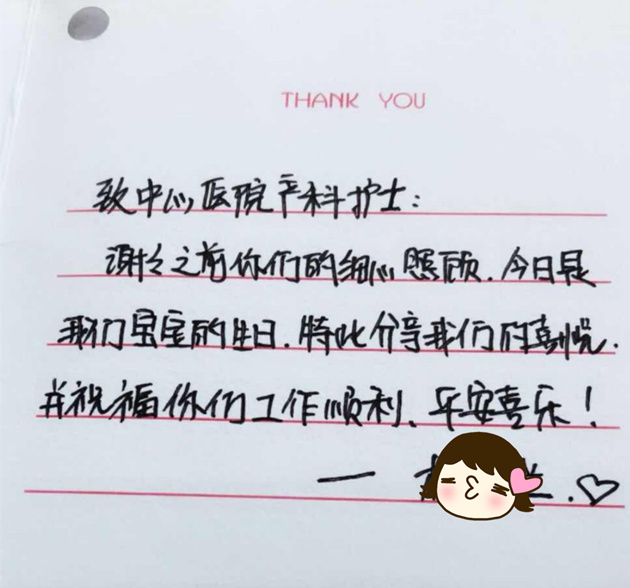 THANK YOU
致中心医院产科护士：
谢谢之前你们的细心照顾.今日是
我们宝宝的生日.特此分享我们的喜悦.
并祝福你们工作顺利、平安喜乐！
—